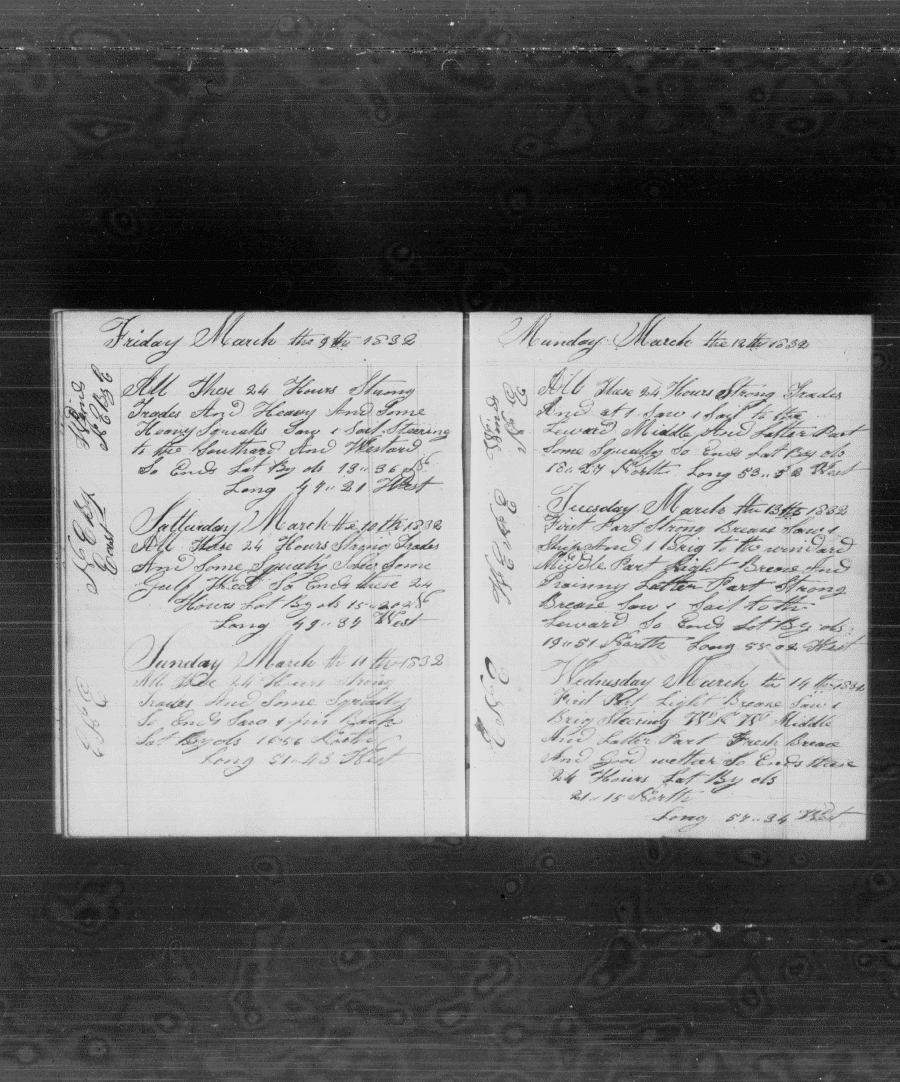 Friday March the 9th 1832
Wind
N E By E
All These 24 Hours Strong
Trades And Heavy And Some
Heavy Squalls Saw 1 Sail Steering
to the Southard And Westard
So Ends Lat By obs 13" 36 N
Long 47" 21 West
Satturday March the 10th 1832
N E By
East
All These 24 Hours Strong Trades
And Some Squaly Saw Some
Gulf Weed So Ends these 24
Hours Lat By obs 15" 20 N
Long 49" 34 West
Sunday March the 11th 1832
E N E
All These 24 Hours Strong
Trades And Some Squally
So Ends Saw 1 fin Back
Lat By obs 16 56 North
Long 51" 43 West
Munday March the 12th 1832
Wind
N E
All These 24 Hours Strong Trades
And at 1 Saw 1 Sail to the
Leward Middle And Latter Part
Some Squally So Ends Lat By obs
18" 27 North Long 53" 52 West
Tuesday March the 13th 1832
First Part Strong Brease Saw 1
Ship And 1 Brig to the windard
Middle Part Light Brease And
Rainny Latter Part Strong
Brease Saw 1 Sail to the
Leward So Ends Lat By obs
19" 51 North Long 55" 02 West
Wednesday March the 14th 1832
E N E
First Part Light Brease Saw 1
Brig Steering Middle
And Latter Part Fresh Brease
And Good wether So Ends these
24 Hours Lat By obs
21" 15 North
Long 57" 34 West